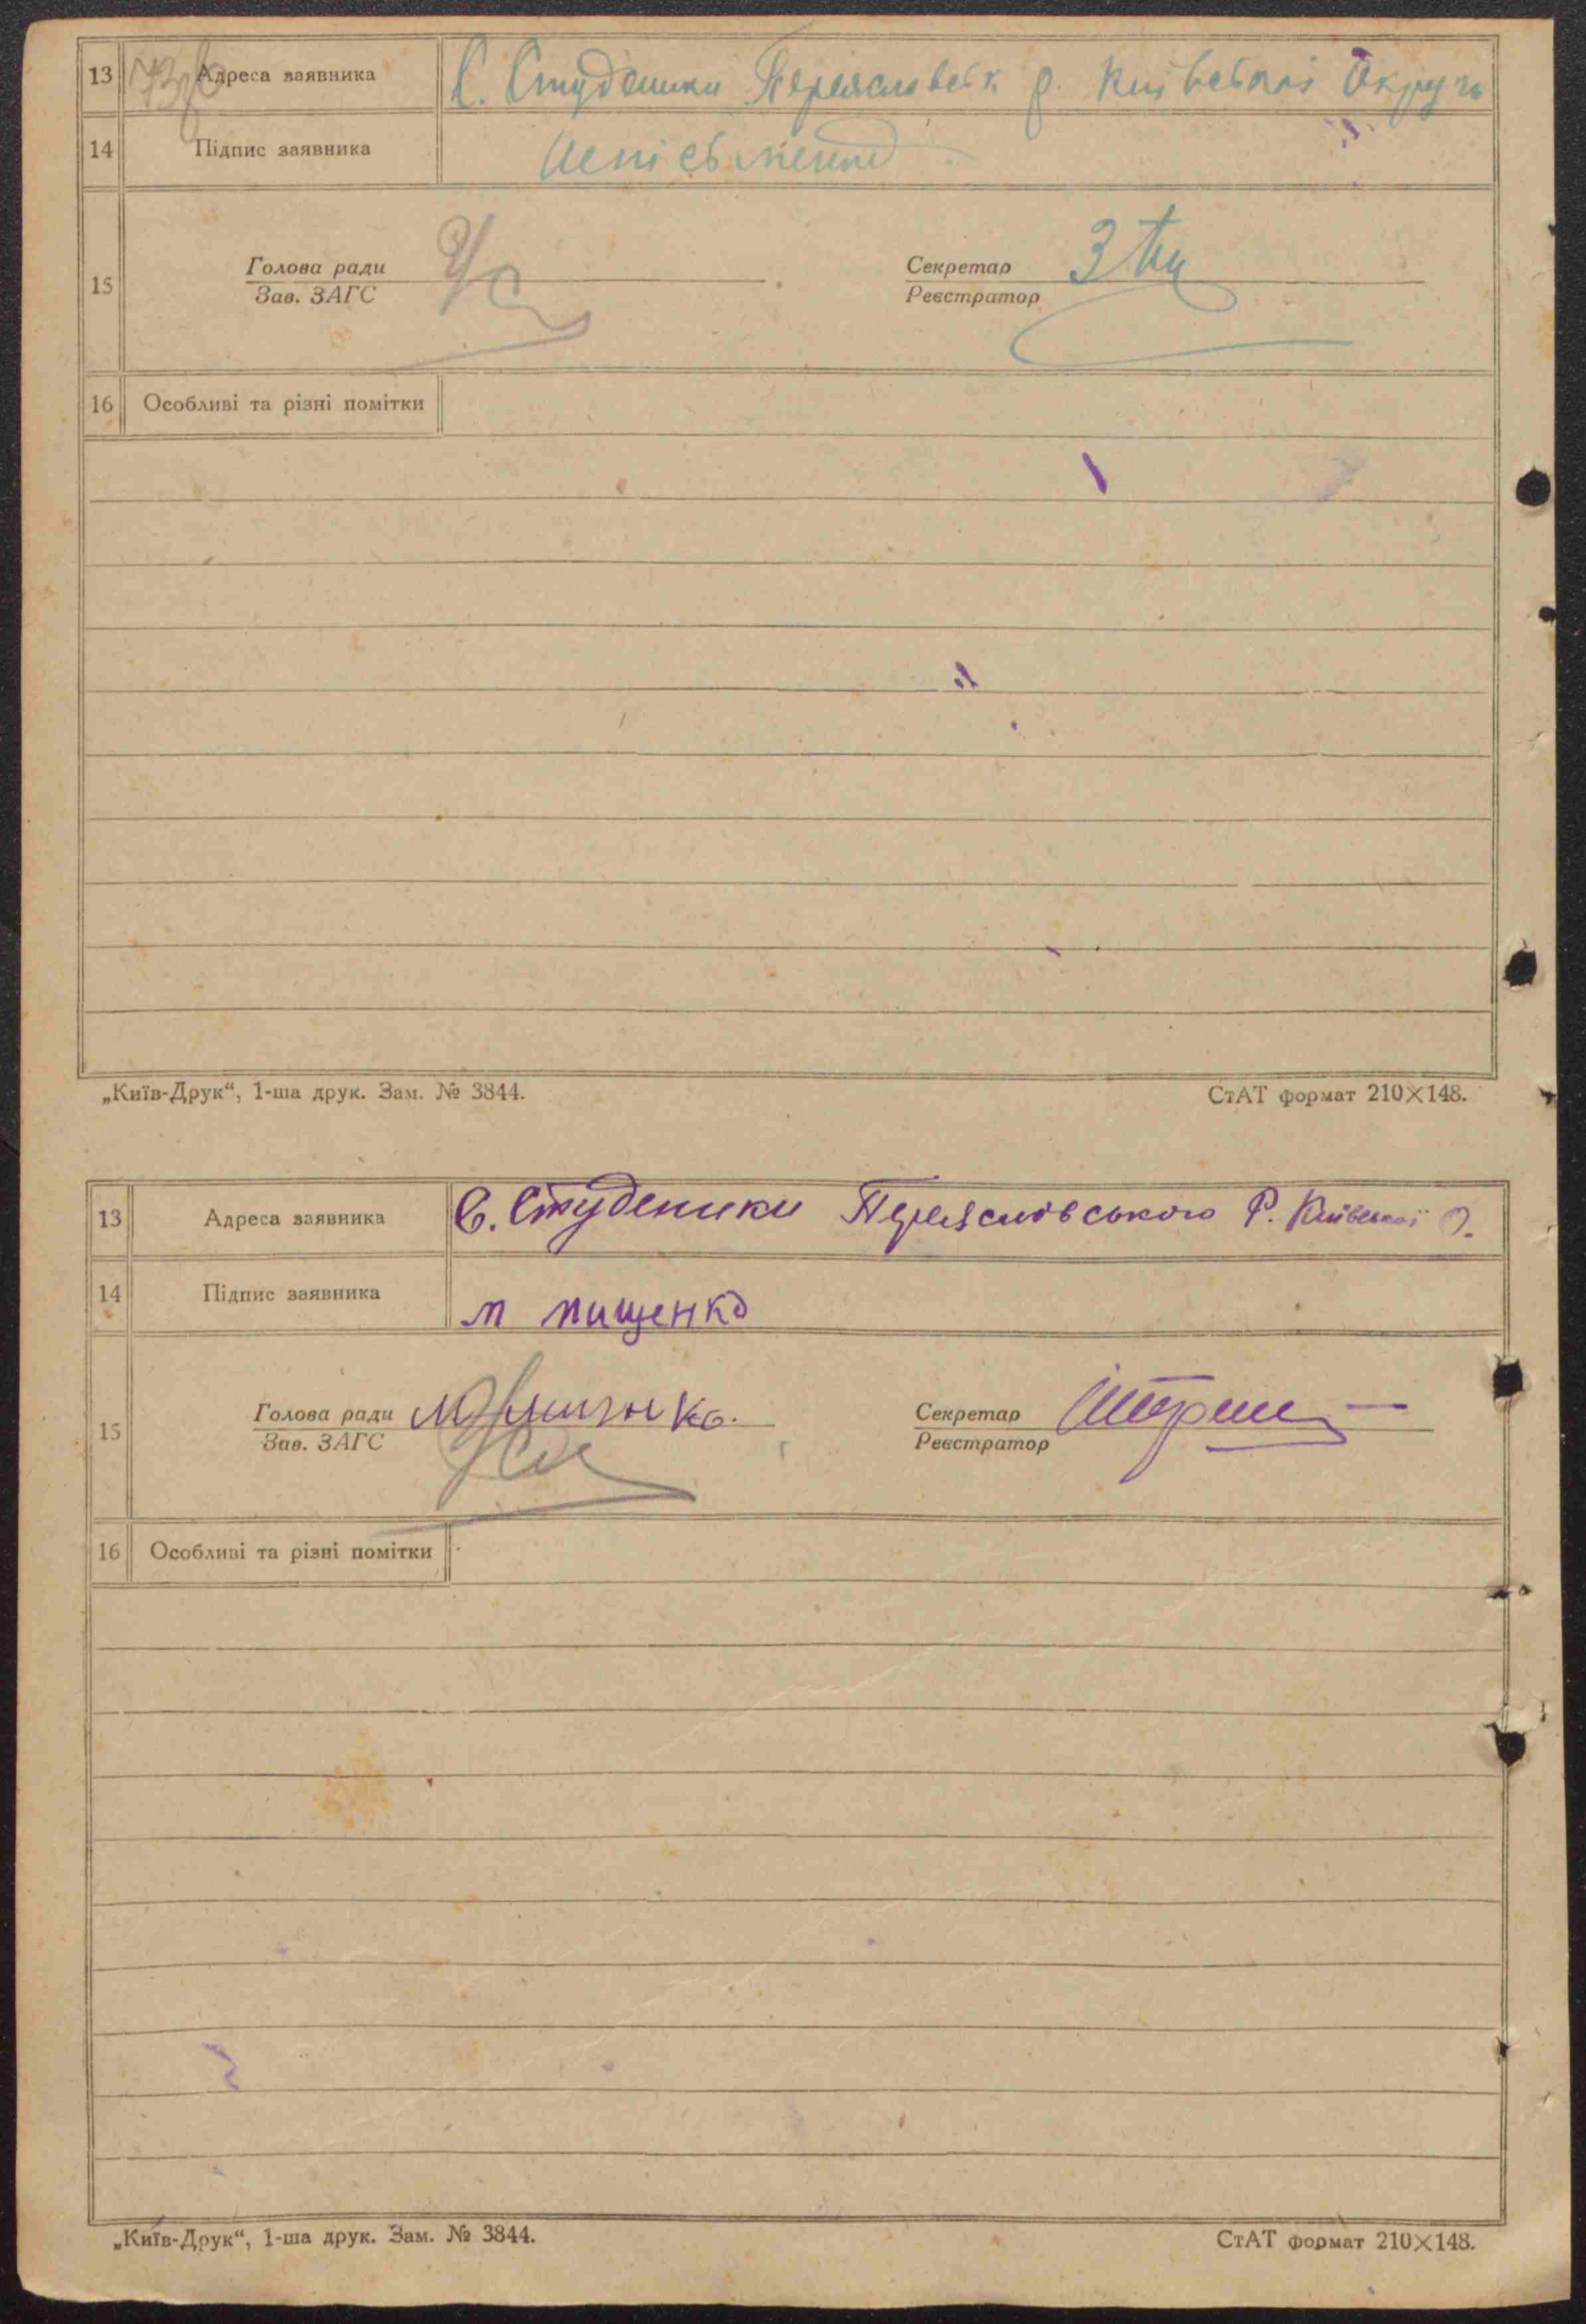 13 Адреса заявника С. Студеники Переяславськ р. Київської Округи
14 Підпис заявника Неписьмений
Голова ради Секретар
15
Зав. ЗАГС Реєстратор
16 Особливі та різні помітки
„Київ-Друк“, 1-ша друк. Зам. № 3844. СтАТ формат 210×148.
13 Адреса заявника С. Студеники Переяславського Р. Київської О.
14 Підпис заявника м пищенко
Голова ради Секретар
15
Зав. ЗАГС Реєстратор
16 Особливі та різні помітки
„Київ-Друк“, 1-ша друк. Зам. № 3844. СтАТ формат 210×148.